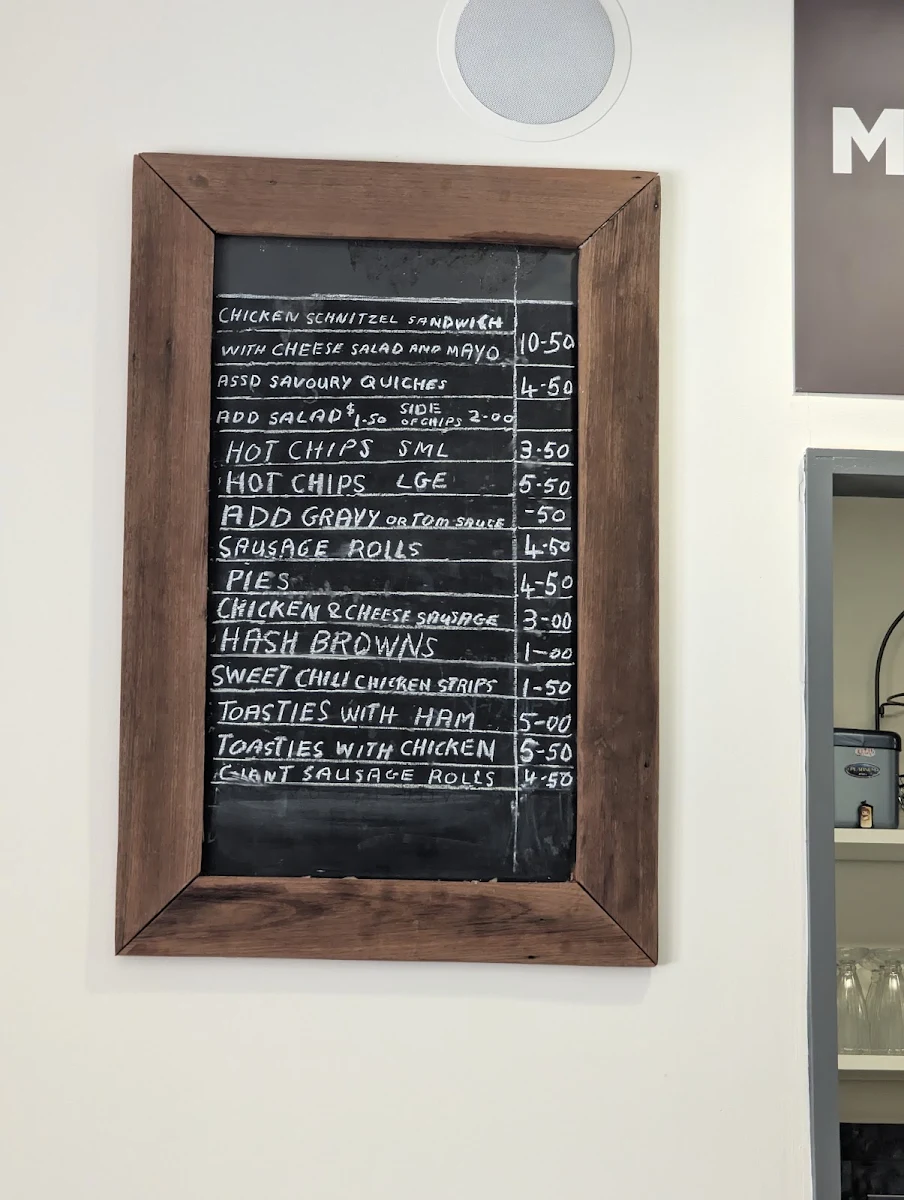 M
CHICKEN SCHNITZEL SANDWICH
WITH CHEESE SALAD AND MAYO 10-50
ASSD SAVOURY QUICHES 4-50
ADD SALAD $1-50 SIDE OF CHIPS 2-00
HOT CHIPS SML 3-50
HOT CHIPS LGE 5-50
ADD GRAVY OR TOM SAUCE -50
SAUSAGE ROLLS 4-50
PIES 4-50
CHICKEN & CHEESE SAUSAGE 3-00
HASH BROWNS 1-00
SWEET CHILI CHICKEN STRIPS 1-50
TOASTIES WITH HAM 5-00
TOASTIES WITH CHICKEN 5-50
GIANT SAUSAGE ROLLS 4-50